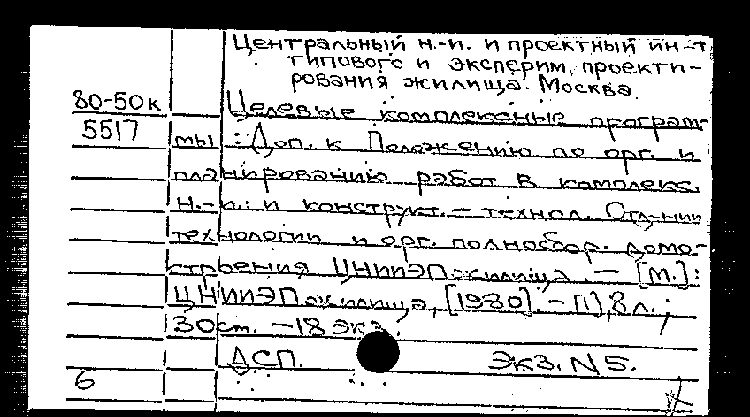 Центральный н.-и. и проектный ин-т
типового и эксперим. проекти-
рования жилища. Москва.
80-50к
Целевые комплексные програм-
5517
мы : Доп. к Положению по орг. и
планированию работ в комплекс.
н.-и. и конструкт.-технол. Отд-нии
технологии и орг. полносбор. домо-
строения ЦНИИЭПжилища. — [М.]:
ЦНИИЭПжилища, [1980]. — [1], 8 л.;
30 см. — 18 экз.
ДСП. Экз. N 5.
6